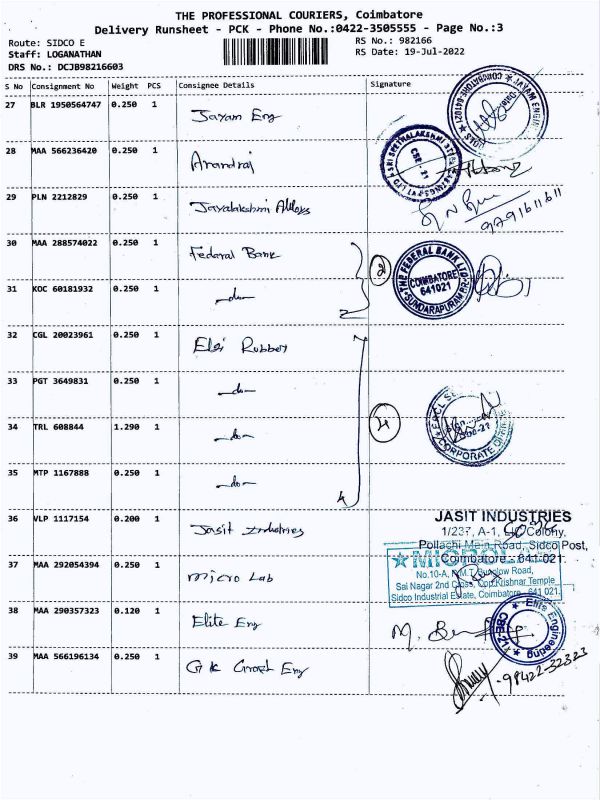 THE PROFESSIONAL COURIERS, Coimbatore
Delivery Runsheet - PCK - Phone No.:0422-3505555 - Page No.:3
Route: SIDCO E
RS No.: 982166
Staff: LOGANATHAN
RS Date: 19-Jul-2022
DRS No.: DCJB98216603
S No Consignment No Weight PCS Consignee Details Signature
27 BLR 1950564747 0.250 1 Jayam Eng
28 MAA 566236420 0.250 1 Anandraj
29 PLN 2212829 0.250 1 Jayalakshmi Alloys
9791611611
30 MAA 288574022 0.250 1 Fedaral Bank
THE FEDERAL BANK LTD
COIMBATORE
641021
SUNDARAPURAM BR.
31 KOC 60181932 0.250 1 -do-
32 CGL 20023961 0.250 1 Elgi Rubber
33 PGT 3649831 0.250 1 -do-
34 TRL 608844 1.290 1 -do-
CORPORATE OFFICE
35 MTP 1167888 0.250 1 -do-
36 VLP 1117154 0.200 1 Jasit Industries
JASIT INDUSTRIES
1/237, A-1, LIC Colony,
Pollachi Main Road, Sidco Post,
Coimbatore - 641 021.
37 MAA 292054394 0.250 1 Micro Lab
MICROLAB
Sai Nagar 2nd Cross, Opp.Krishnar Temple
Sidco Industrial Estate, Coimbatore - 641 021.
38 MAA 290357323 0.120 1 Elite Eng
Elite Engineering
CBE-21
39 MAA 566196134 0.250 1 G K Eng
98422-32323